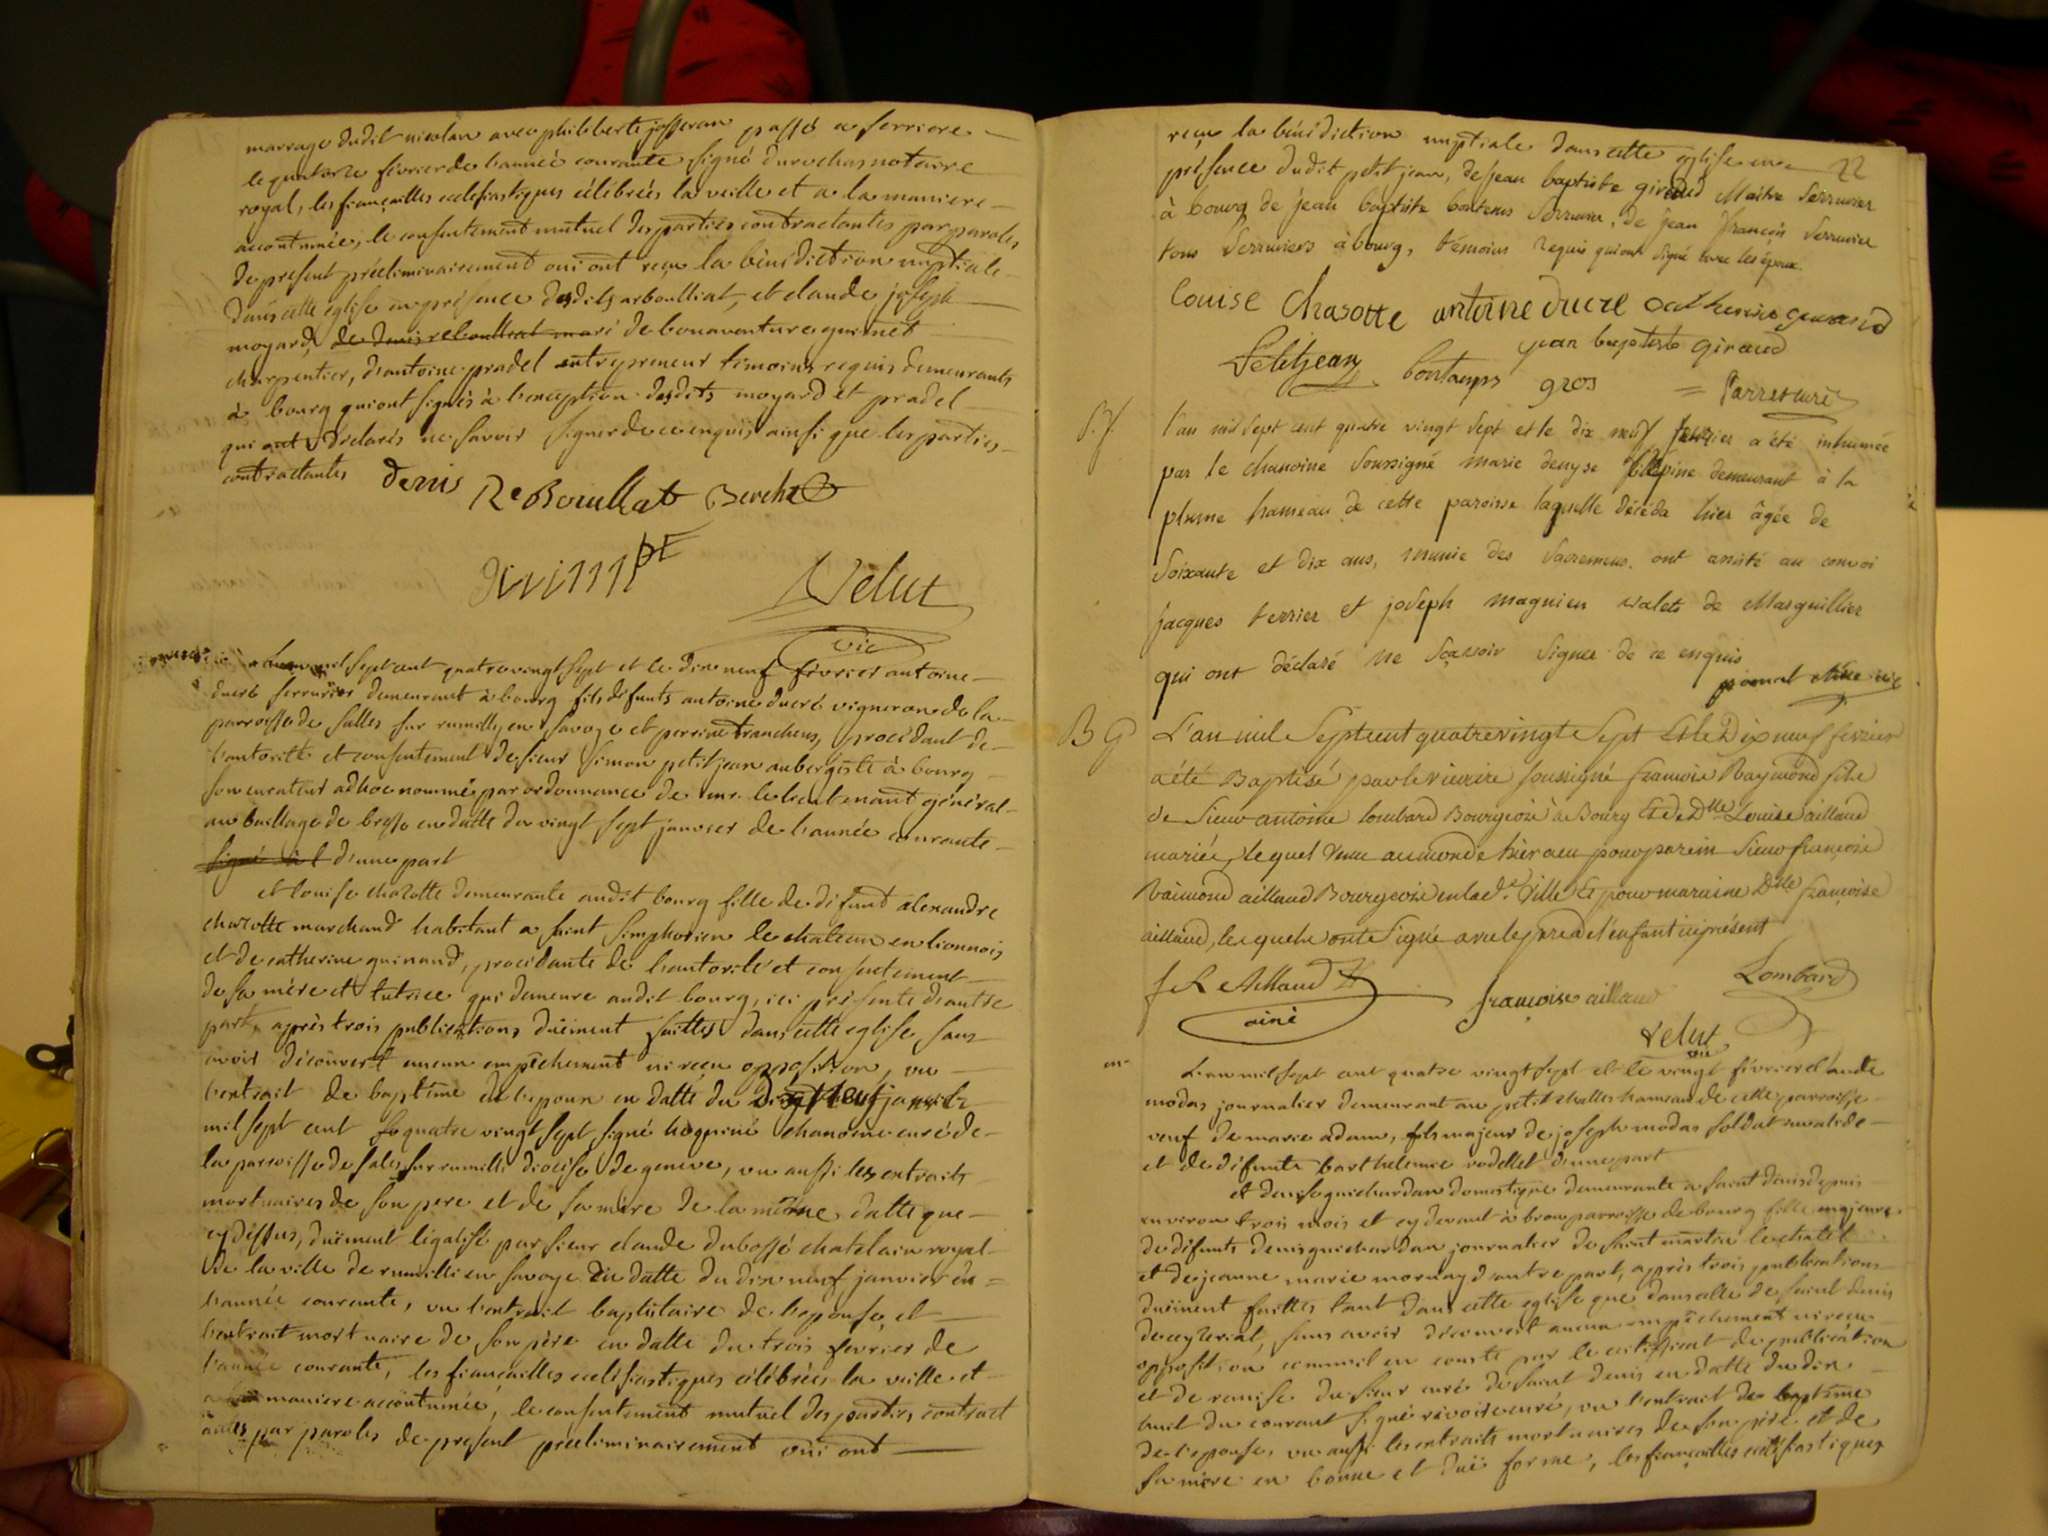 mariage dudit nicolas avec philiberte josseran passé a ferriere
le quatorze février de l'année courante, signé durochas notaire
royal, les fiançailles eclesiastiques célébrées la veille et a la maniere
accoutumée, le consentement mutuel des parties contractantes par paroles
de present préliminairement oui ont reçu la bénédiction nuptiale
dans cette église en présence desdits arboulliat, et claude joseph
moyard, de denis reboulliat mari de bonaventure guimet
charpentier, d'antoine pradel entrepreneur témoins requis demeurants
à bourg qui ont signés à l'exception desdits moyard et pradel
qui ont déclarés ne savoir signer de ce enquis ainsi que les parties
contractantes denis ReBoullat Berchet
Velut
vic
L'an mil sept cent quatre vingt sept et le dix neuf février antoine
ducré serrurier demeurant à bourg fils défunts antoine ducré vigneron de la
parroisse de salles sur rumilly en savoye et perrine tranchens, procédant de
l'autorité et consentement de sieur simon petitjean aubergiste à bourg
son curateur adhoc nommé par ordonnance de mr. le lieutenant général
au bailliage de bresse en datte du vingt sept janvier de l'année courante
signé d'une part
et louise chazotte demeurante audit bourg fille de défunt alexandre
chazotte marchand habitant a saint simphorien le chateau en lionnois
et de catherine guinand, procédante de l'autorité et consentement
de sa mére et tutrice qui demeure audit bourg, ici présente d'autre
part, après trois publications duëment faittes dans cette eglise sans
avoir découvert aucun empêchement ni reçu opposition, vu
l'extrait de baptême de l'epoux en datte du Dix Neuf janvier
mil sept cent quatre vingt sept signé hogpiné chanoine curé de
la parroisse de sales sur rumilli diocèse de geneve, vu aussi les extraits
mortuaires de son pere et de sa mére de la même datte que
cy dessus, duëment légalisé par sieur claude dubossé chatelain royal
de la ville de rumilli en savoye en datte du dix neuf janvier de
l'année courante, vu l'extrait baptistaire de l'epouse, et
l'extrait mortuaire de son père en datte du trois février de
l'année courante, les fiancailles eclésiastiques célébrées la veille et
a la maniere accoutumée, le consentement mutuel des parties contract
antes par paroles de present préeliminairement oui ont
22
reçu la bénédiction nuptiale dans cette église en
présence dudit petitjean, de jean baptiste giraud Maitre Serrurier
à bourg de jean baptiste bontems Serrurier, de jean françois Serrurier
tous Serruriers à bourg, témoins requis qui ont signé avec les époux.
Louise Chazotte antoine ducré catherine guinand
jean baptiste giraud
Petitjean bontemps gros
S.f.
l'an mil sept cent quatre vingt sept et le dix neuf février a été inhumée
par le chanoine soussigné marie denyse demeurant à la
plume hameau de cette paroisse laquelle décéda hier âgée de
soixante et dix ans, munie des sacremens. ont assisté au convoi
jacques terrier et joseph magnien valets de Marguillier
qui ont déclaré ne sçavoir signer de ce enquis
B G
L'an mil Sept cent quatre vingt Sept Et le Dix neuf février
a été Baptisé par le vicaire soussigné françois Raymond fils
de Sieur antoine lombard Bourgeois à Bourg Et de Dlle Louise aillaud
mariés, lequel venu au monde hier a eu pour parein Sieur françois
Raimond aillaud Bourgeois en lad. Ville Et pour maraine Dlle françoise
aillaud, lesquels ont Signé avec le pere de l'enfant ici présent
f R Aillaud ainé françoise aillaud Lombard
velut
vic
L'an mil sept cent quatre vingt sept et le vingt février claude
modas journalier demeurant au petit challes hameau de cette parroisse
veuf de marie adam, fils majeur de joseph modas soldat invalide
et de défunte barthelemie rodellet d'une part
et denise guichardan domestique demeurante a saint denis depuis
environ trois mois et cy devant à brou parroisse de bourg fille majeure
de défunts denis guichardan journalier de saint martin le chatel
et de jeanne marie mornay d'autre part, après trois publications
duëment faittes tant dans cette eglise que dans celle de saint denis
de ceyzeriat, sans avoir découvert aucun empêchement ni reçu
opposition comme il en conste par le certifficat de publication
et de remise du sieur curé de saint denis en datte du dix
huit du courant signé curé, vu l'extrait de baptême
de l'epouse, vu aussi les extraits mortuaires de son père et de
sa mère en bonne et duë forme, les fiançailles ecclésiastiques